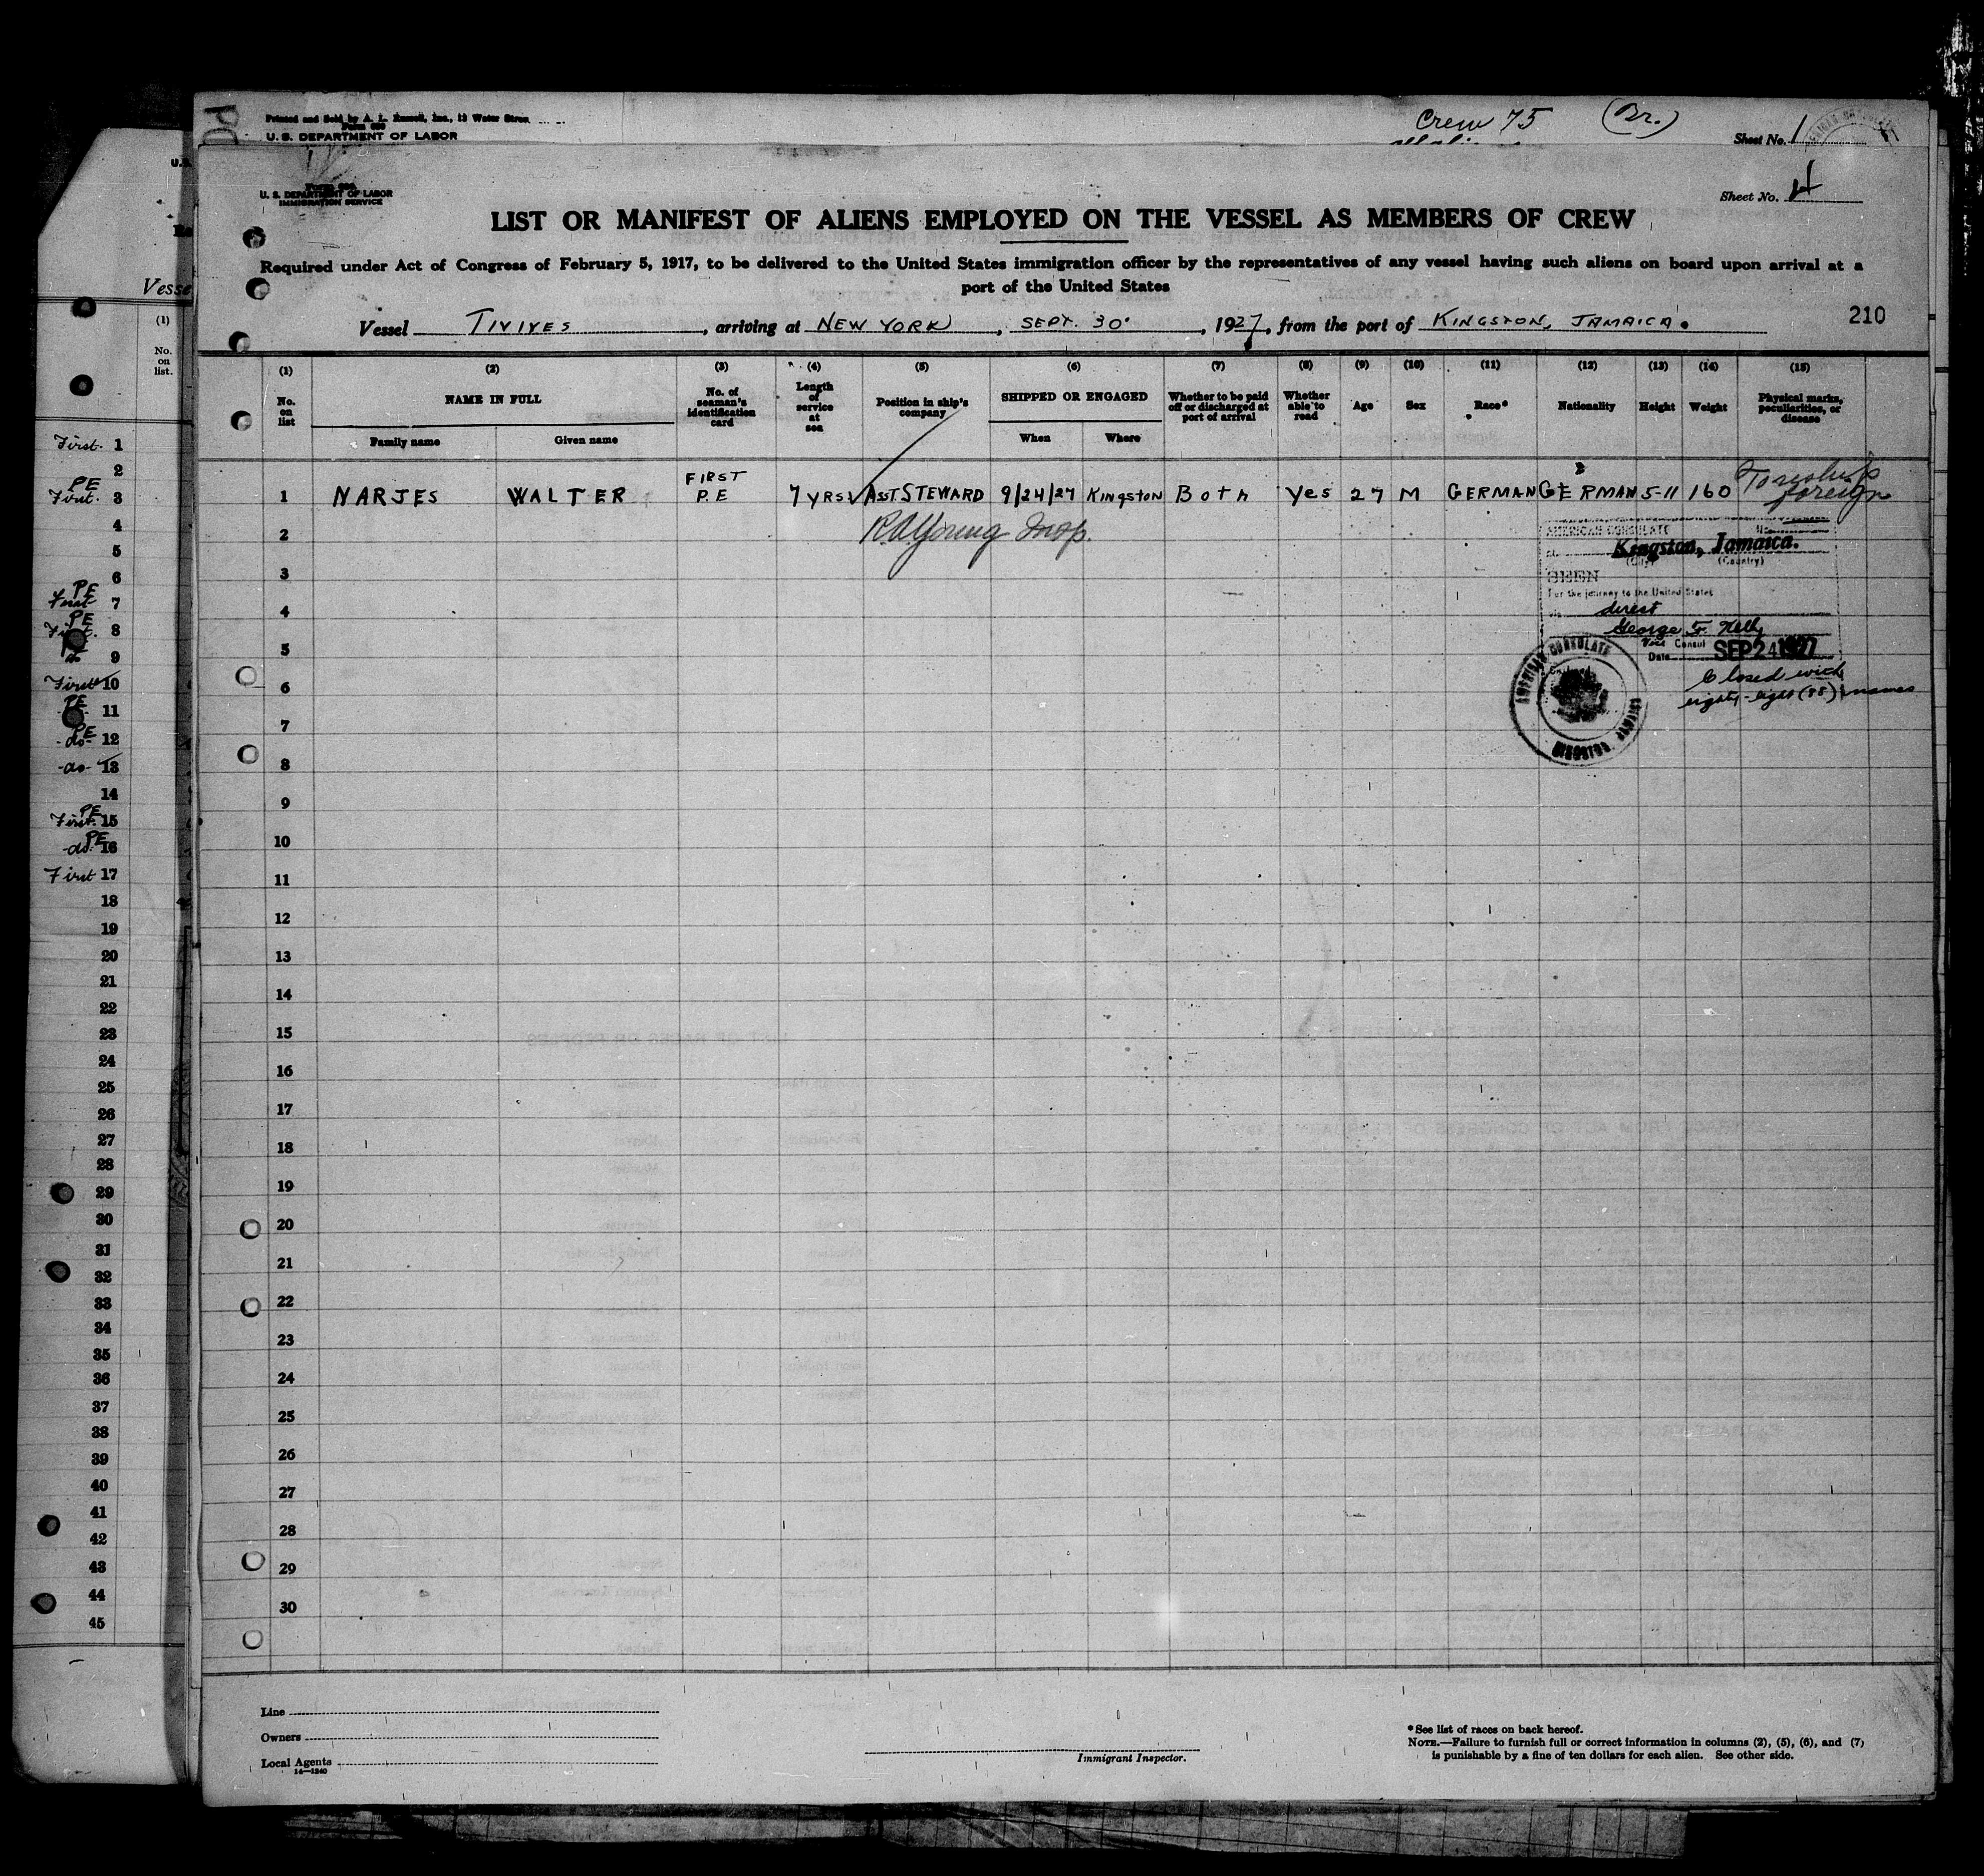 Printed and Sold by A. L. Russell, Inc., 13 Water Street
Form 680
U. S. DEPARTMENT OF LABOR
Crew 75 (Br.)
Sheet No. 1
U. S. DEPARTMENT OF LABOR
IMMIGRATION SERVICE
Sheet No. 4
LIST OR MANIFEST OF ALIENS EMPLOYED ON THE VESSEL AS MEMBERS OF CREW
Required under Act of Congress of February 5, 1917, to be delivered to the United States immigration officer by the representatives of any vessel having such aliens on board upon arrival at a
port of the United States
Vessel TIVIVES, arriving at NEW YORK, SEPT. 30, 1927, from the port of KINGSTON, JAMAICA.
210
(1) (2) (3) (4) (5) (6) (7) (8) (9) (10) (11) (12) (13) (14) (15)
No. on list
NAME IN FULL
Family name
Given name
No. of seaman's identification card
Length of service at sea
Position in ship's company
SHIPPED OR ENGAGED
When
Where
Whether to be paid off or discharged at port of arrival
Whether able to read
Age
Sex
Race*
Nationality
Height
Weight
Physical marks, peculiarities, or disease
1 NARJES WALTER FIRST P.E 7 YRS ASST. STEWARD 9/24/27 KINGSTON Both Yes 27 M GERMAN GERMAN 5-11 160 To reship foreign
2 R A Young Insp.
3
4
5
6
7
8
9
10
11
12
13
14
15
16
17
18
19
20
21
22
23
24
25
26
27
28
29
30
AMERICAN CONSULATE
Kingston, Jamaica.
(City) (Country)
SEEN
For the journey to the United States
via direct
George F. Kelly
Vice Consul
Date SEP 24 1927
Closed with
eighty-eight (88) names
AMERICAN CONSULATE
KINGSTON,
Line
Owners
Local Agents
14—1240
Immigrant Inspector.
*See list of races on back hereof.
NOTE.—Failure to furnish full or correct information in columns (2), (5), (6), and (7)
is punishable by a fine of ten dollars for each alien. See other side.
U.S.
Vesse
(1)
No. on list.
First. 1
2
PE
First. 3
4
5
6
PE
First 7
PE
First. 8
do 9
First 10
PE
11
PE
-do- 12
-do- 13
14
PE
First. 15
PE
-do- 16
First 17
18
19
20
21
22
23
24
25
26
27
28
29
30
31
32
33
34
35
36
37
38
39
40
41
42
43
44
45